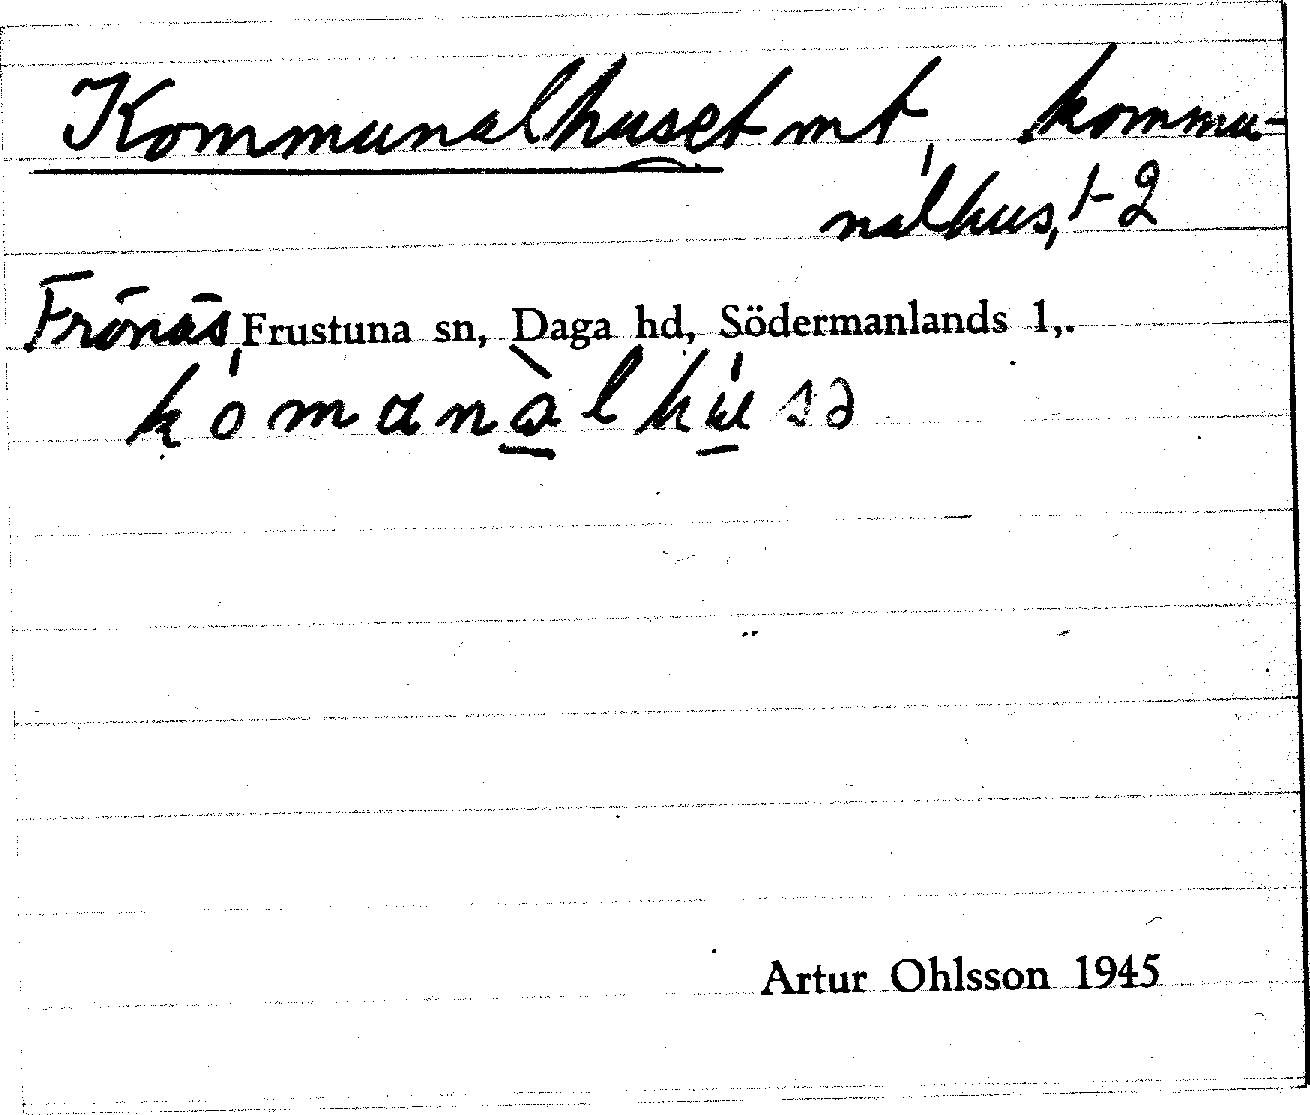 Kommunalhuset mt, kommu-
nalhus, t-2
Frönäs, Frustuna sn, Daga hd, Södermanlands l,.
kómanàlhúsə
Artur Ohlsson 1945